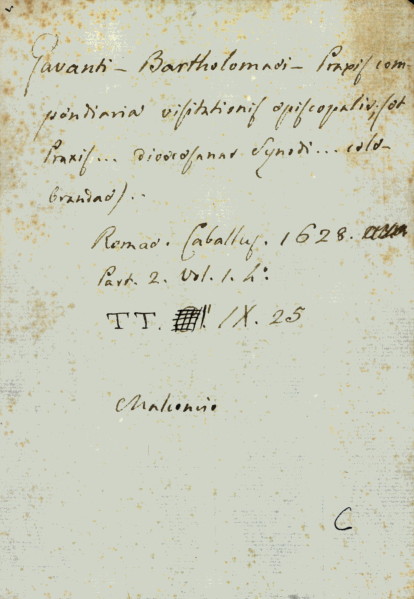 Gavanti - Bartholomaei - Praxis com-
pendiaria visitationis episcopalis, (et
Praxis... dioecesanae Synodi... cele-
brandae)..
Romae. Caballus. 1628.
Part. 2. Vol. 1. 4º.
TT. IX. 25
C